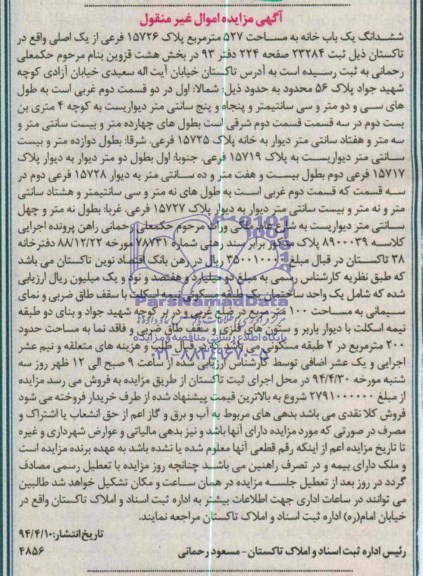 آگهی مزایده اموال غیر منقول
ششدانگ یک باب خانه به مساحت ۵۲۷ مترمربع پلاک ۱۵۷۲۶ فرعی از یک اصلی واقع در
تاکستان ذیل ثبت ۲۳۲۸۴ صفحه ۲۲۴ دفتر ۹۳ در بخش هشت قزوین بنام مرحوم حکمعلی
رحمانی به ثبت رسیده است به آدرس تاکستان خیابان آیت اله سعیدی خیابان آزادی کوچه
شهید جواد پلاک ۵۶ محدود به حدود ذیل: شمالا: اول در دو قسمت دوم غربی است به طول
های سی و دو متر و سی سانتیمتر و پنجاه و پنج سانتی متر دیواریست به کوچه ۴ متری بن
بست دوم در سه قسمت قسمت دوم شرقی است بطول های چهارده متر و بیست سانتی متر و
سه متر و هفتاد سانتی متر دیوار به خانه پلاک ۱۵۷۲۵ فرعی. شرقا: بطول دوازده متر و بیست
سانتی متر دیواریست به پلاک ۱۵۷۱۹ فرعی. جنوبا: اول بطول دو متر دیوار به دیوار پلاک
۱۵۷۱۷ فرعی دوم بطول بیست و هفت متر و ده سانتی متر به دیوار ۱۵۷۲۸ فرعی دوم در
سه قسمت که قسمت دوم غربی است به طول های نه متر و سی سانتیمتر و هشتاد سانتی
متر و نه متر و بیست سانتی متر دیوار به دیوار پلاک ۱۵۷۲۷ فرعی. غربا: بطول نه متر و چهل
سانتی متر دیواریست به شارع ملک وراث مرحوم حکمعلی رحمانی راهن پرونده اجرایی
کلاسه ۸۹۰۰۰۳۹ پلاک مزبور برابر سند رهنی شماره ۷۸۷۳۱ مورخه ۸۸/۱۲/۲۲ دفترخانه
۳۸ تاکستان در قبال مبلغ ۳۵۰۰۱۰۰۰۰ ریال در رهن بانک اقتصاد نوین تاکستان می باشد
که طبق نظریه کارشناس رسمی به مبلغ دو میلیارد و هفتصد و نود و یک میلیون ریال ارزیابی
شده که شامل یک واحد ساختمان یک طبقه مسکونی نیمه اسکلت با سقف طاق ضربی و نمای
سیمانی به مساحت ۱۰۰ متر مربع در ضلع غربی و در بر کوچه شهید جواد و بنای دو طبقه
نیمه اسکلت با دیوار باربر و ستون های فلزی و سقف طاق ضربی و فاقد نما به مساحت حدود
۲۰۰ مترمربع در ۲ طبقه مسکونی می باشد که در قبال طلب و هزینه های متعلقه و نیم عشر
اجرایی و یک عشر اضافی توسط کارشناس ارزیابی شده از ساعت ۹ صبح الی ۱۲ ظهر روز سه
شنبه مورخه ۹۴/۴/۳۰ در محل اجرای ثبت تاکستان از طریق مزایده به فروش می رسد مزایده
از مبلغ ۲۷۹۱۰۰۰۰۰۰ شروع به بالاترین قیمت پیشنهاد شده از طرف خریدار فروخته می شود
فروش کلا نقدی می باشد بدهی های مربوط به آب و برق و گاز اعم از حق انشعاب یا اشتراک و
مصرف در صورتی که مورد مزایده دارای آنها باشد و نیز بدهی مالیاتی و عوارض شهرداری و غیره
تا تاریخ مزایده اعم از اینکه رقم قطعی آنها معلوم شده یا نشده باشد به عهده برنده مزایده است
و ملک دارای بیمه و در تصرف راهنین می باشد چنانچه روز مزایده با تعطیل رسمی مصادف
گردد در روز بعد از تعطیل جلسه مزایده در همان ساعت و مکان تشکیل خواهد شد طالبین
می توانند در ساعات اداری جهت اطلاعات بیشتر به اداره ثبت اسناد و املاک تاکستان واقع در
خیابان امام(ره) اداره ثبت اسناد و املاک تاکستان مراجعه نمایند.
تاریخ انتشار: ۹۴/۴/۱۰
رئیس اداره ثبت اسناد و املاک تاکستان - مسعود رحمانی
۴۸۵۶
ParsNamadData
پایگاه اطلاع رسانی مناقصه و مزایده
۰۲۱-۸۸۳۴۹۶۷۰-۵